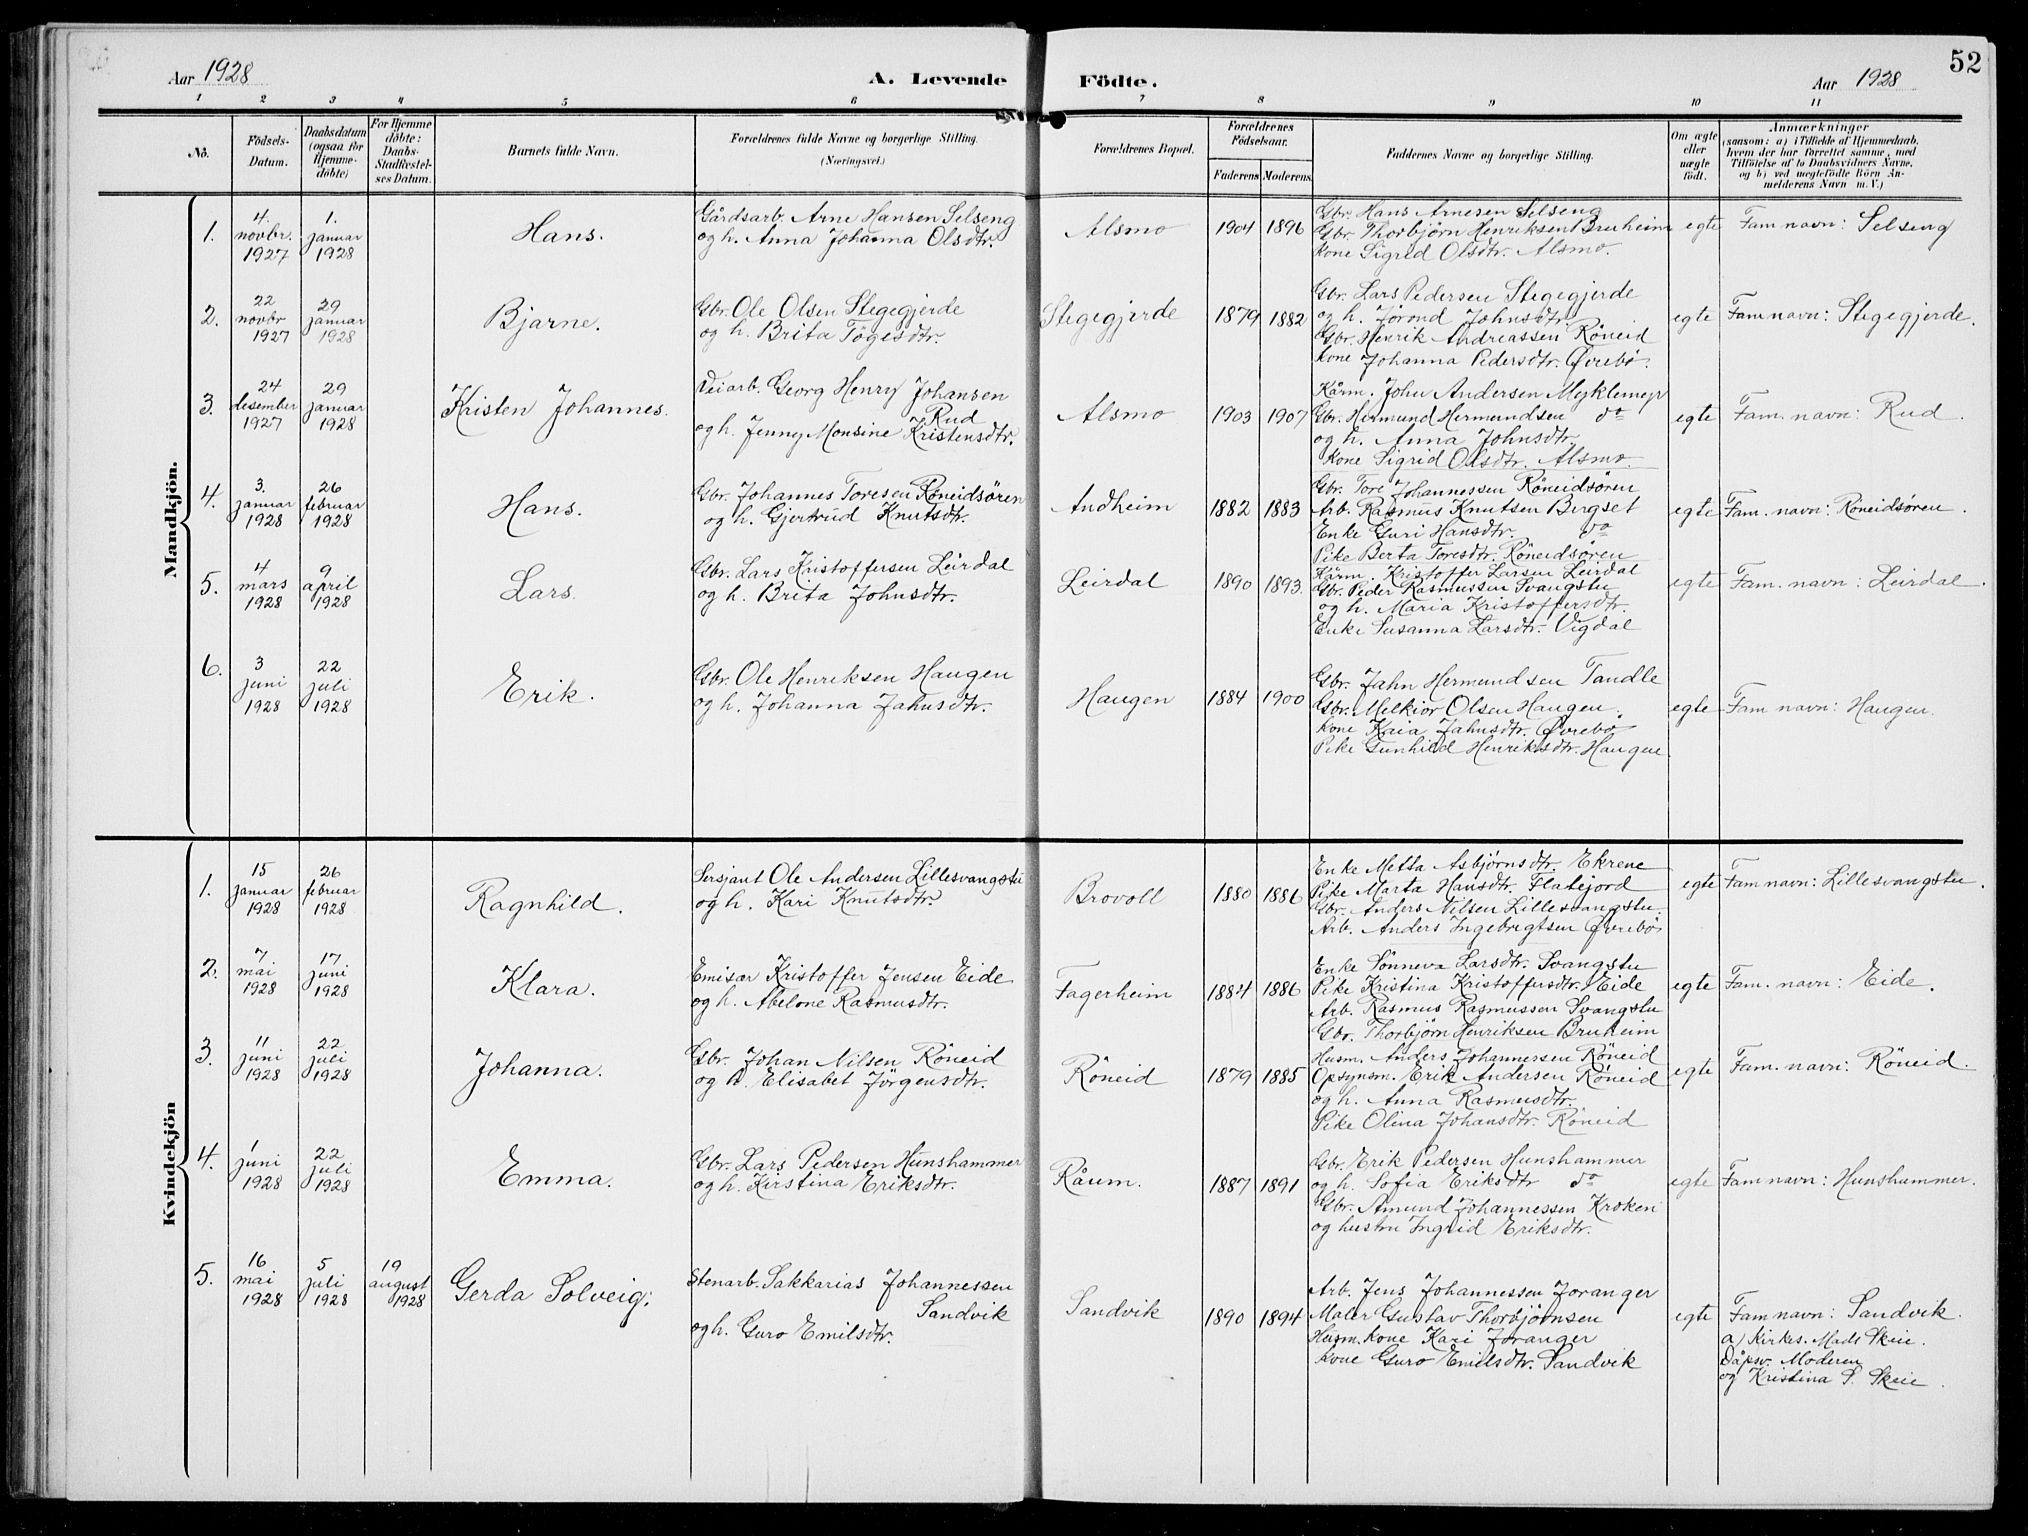 52
Aar 1928
A. Levende Födte.
Aar 1928
1 2 3 4 5 6 7 8 9 10 11
No.
Födsels-Datum.
Daabsdatum (ogsaa for Hjemme-döbte)
For Hjemme döbte: Daabs-Stadfæstel-ses Datum.
Barnets fulde Navn.
Forældrenes fulde Navne og borgerlige Stilling.
(Næringsvei.)
Forældrenes Bopæl.
Forældrenes Födselsaar.
Faderens Moderens
Faddernes Navne og borgerlige Stilling.
Om ægte eller uægte födt.
Anmærkninger
(saasom: a) i Tilfælde af Hjemmedaab,
hvem der har forrettet samme, med
Tilföielse af to Daabsvidners Navne,
og b) ved uegtefödte Börn An-
melderens Navn m. V.)
Mandkjön.
1.
4. novbr. 1927
1. januar 1928
Hans.
Gårdsarb. Arne Hansen Selseng
og h. Anna Johanna Olsdtr.
Alsmo
1904 1896
Gbr. Hans Arnesen Selseng
Gbr. Thorbjörn Henriksen Bruheim
Kone Sigrid Olsdtr. Alsmo.
egte
Fam navn: Selseng
2.
22 novbr 1927
29 januar 1928
Bjarne.
Gbr. Ole Olsen Stegegjerde
og h. Brita Tögesdtr.
Stegegjerde
1879 1882
Gbr. Lars Pedersen Stegegjerde
og h. Jörond Johnsdtr.
Gbr. Henrik Andreassen Röneid
Kone Johanna Pedersdtr. Øvrebö.
egte
Fam navn: Stegegjerde.
3.
24 desember 1927
29 januar 1928
Kristen Johannes.
Veiarb. Georg Henry Johansen
Rud
og h. Jenny Monsine Kristensdtr.
Alsmo
1903 1907
Kårm. John Andersen Myklemyr
Gbr. Hermund Hermundsen do
og h. Anna Johnsdtr.
Kone Sigrid Olsdtr. Alsmo.
egte
Fam. navn: Rud.
4.
3. januar 1928
26 februar 1928
Hans.
Gbr. Johannes Toresen Röneidsören
og h. Gjertrud Knutsdtr.
Andheim
1882 1883
Gbr. Tore Johannessen Röneidsören
Arb. Rasmus Knutsen Bergset
Enke Guri Hansdtr. do
Pike Berta Toresdtr. Röneidsören
egte
Fam. navn: Röneidsören.
5.
4 mars 1928
9 april 1928
Lars.
Gbr. Lars Kristoffersen Leirdal
og h. Brita Johnsdtr.
Leirdal
1890 1893.
Kårm. Kristoffer Larsen Leirdal
Gbr. Peder Rasmussen Svangstu
og h. Maria Kristoffersdtr.
Enke Susanna Larsdtr. Vigdal
egte
Fam. navn: Leirdal.
6.
3 juni 1928
22 juli 1928
Erik.
Gbr. Ole Henriksen Haugen
og h. Johanna Jahnsdtr.
Haugen
1884 1900
Gbr. Jahn Hermundsen Tandle
Gbr. Melkior Olsen Haugen.
Kone Kaia Jahnsdtr. Øvrebö
Pike Gunhild Henriksdtr. Haugen
egte
Fam navn: Haugen.
Kvindekjön
1.
15 januar 1928
26 februar 1928
Ragnhild.
Sersjant Ole Andersen Lillesvangstu
og h. Kari Knutsdtr.
Brovoll
1880 1886
Enke Metta Asbjörnsdtr. Ekrene
Pike Marta Hansdtr. Flatejord
Gbr. Anders Nilsen Lillesvangstu.
Arb. Anders Ingebrigtsen Øvrebö
egte
Fam navn: Lillesvangstu.
2.
7 mai 1928
17 juni 1928
Klara.
Emisær Kristoffer Jensen Eide
og h. Abelone Rasmusdtr.
Fagerheim
1884 1886
Enke Sönneva Larsdtr. Svangstu
Pike Kristina Kristoffersdtr. Eide
Arb. Rasmus Rasmussen Svangstu
Gbr. Thorbjörn Henriksen Bruheim
egte
Fam. navn: Eide.
3.
11 juni 1928
22 juli 1928
Johanna.
Gbr. Johan Nilsen Röneid
og h. Elisabet Jörgensdtr.
Röneid
1879 1885
Husm. Anders Johannersen Röneid
Opsynsm. Erik Andersen Röneid
og h. Anna Rasmusdtr.
Pike Olina Johansdtr. Röneid
egte
Fam. navn: Röneid.
4.
1 juni 1928
22 juli 1928
Emma.
Gbr. Lars Pedersen Hunshammer
og h. Kirstina Eriksdtr.
Råum.
1887 1891
Gbr. Erik Pedersen Hunshammer
og h. Sofia Eriksdtr do
Gbr. Amund Johannessen Kroken
og hustru Ingrid Eriksdtr.
egte
Fam navn: Hunshammer.
5.
16 mai 1928
5 juli 1928
19 august 1928
Gerda Solveig.
Stenarb. Sakkarias Johannessen
Sandvik
og h. Guro Emilsdtr.
Sandvik
1890 1894
Arb. Jens Johannessen Joranger
Maler Gustav Thorbjörnsen
Husm. Kone Kari Joranger
Kone Guro Emilsdtr. Sandvik
egte
Fam navn: Sandvik.
a) Kirkes. Mads Skeie.
Dåpsv. Moderen
og Kristina S. Skeie.